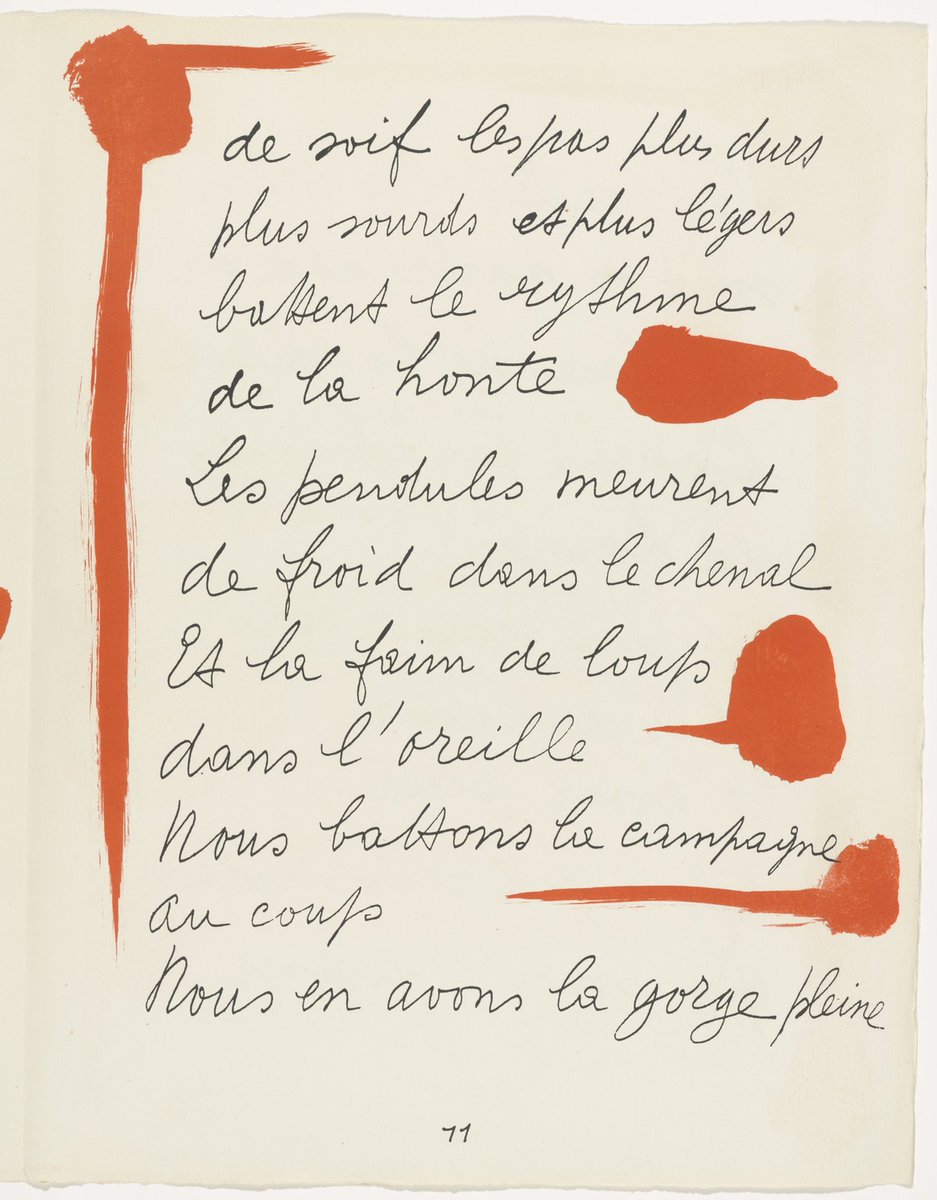 de soif les pas plus durs
plus sourds et plus légers
battent le rythme
de la honte
Les pendules meurent
de froid dans le chenal
Et la faim de loup
dans l'oreille
Nous battons la campagne
au coup
Nous en avons la gorge pleine
11